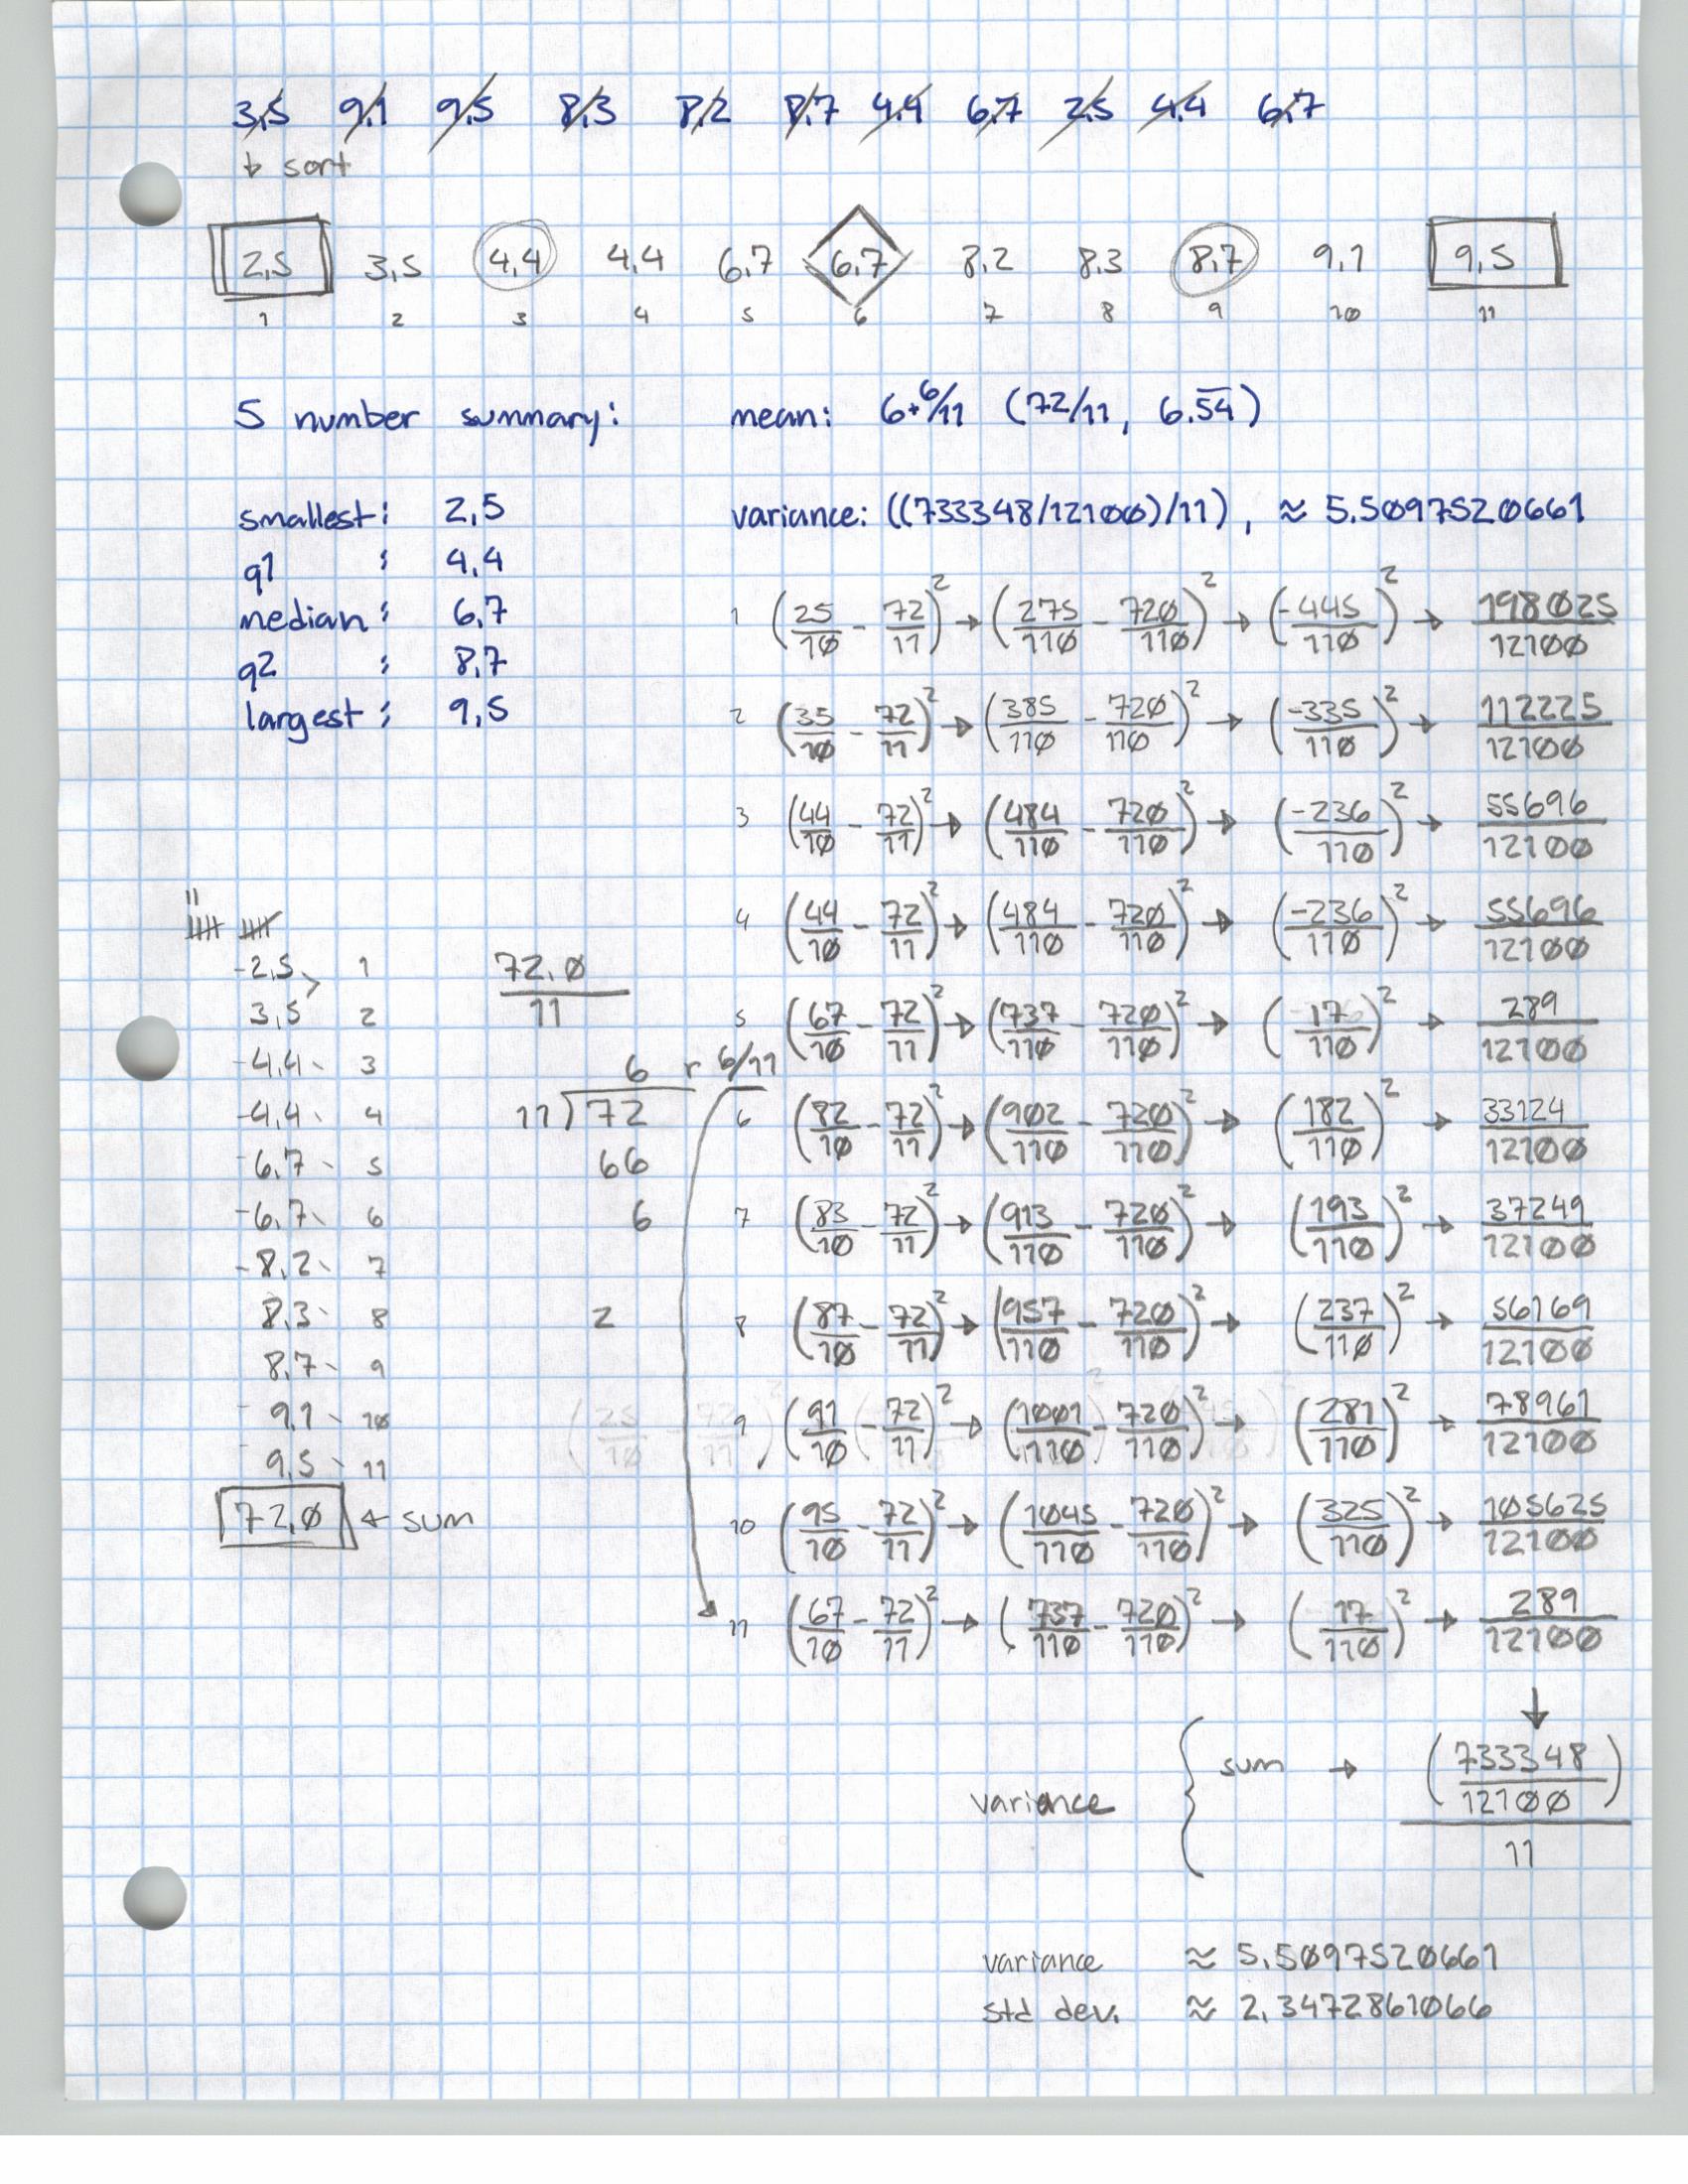 3.5 9.1 9.5 8.3 8.2 8.7 4.4 6.7 2.5 4.4 6.7
↓ sort
2.5 3.5 4.4 4.4 6.7 6.7 8.2 8.3 8.7 9.1 9.5
1 2 3 4 5 6 7 8 9 10 11
5 number summary:
smallest: 2.5
q1 : 4.4
median : 6.7
q2 : 8.7
largest : 9.5
mean: 6+6/11 (72/11, 6.5̅4̅)
variance: ((733348/12100)/11), ≈ 5.5097520661
1 (25/10 - 72/11)² → (275/110 - 720/110)² → (-445/110)² → 198025/12100
2 (35/10 - 72/11)² → (385/110 - 720/110)² → (-335/110)² → 112225/12100
3 (44/10 - 72/11)² → (484/110 - 720/110)² → (-236/110)² → 55696/12100
4 (44/10 - 72/11)² → (484/110 - 720/110)² → (-236/110)² → 55696/12100
5 (67/10 - 72/11)² → (737/110 - 720/110)² → (17/110)² → 289/12100
6 (82/10 - 72/11)² → (902/110 - 720/110)² → (182/110)² → 33124/12100
7 (83/10 - 72/11)² → (913/110 - 720/110)² → (193/110)² → 37249/12100
8 (87/10 - 72/11)² → (957/110 - 720/110)² → (237/110)² → 56169/12100
9 (91/10 - 72/11)² → (1001/110 - 720/110)² → (281/110)² → 78961/12100
10 (95/10 - 72/11)² → (1045/110 - 720/110)² → (325/110)² → 105625/12100
11 (67/10 - 72/11)² → (737/110 - 720/110)² → (17/110)² → 289/12100
11
-2.5 1
3.5 2
-4.4 3
-4.4 4
-6.7 5
-6.7 6
-8.2 7
8.3 8
8.7 9
9.1 10
9.5 11
72.0 ← sum
72.0
11
6 r 6/11
11)72
66
6
2
variance { sum → (733348/12100)
11
variance ≈ 5.5097520661
std dev. ≈ 2.3472861066